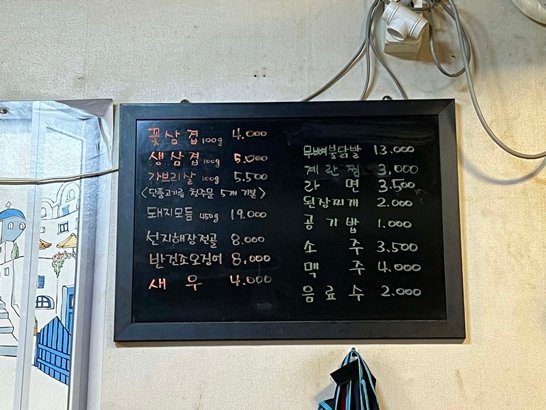 꽃삼겹 100g 4.000
생삼겹 100g 5.000
가브리살 100g 5.500
돼지모듬 450g 19.000
선지해장전골 8.000
반건조오징어 8.000
새우 4.000
무뼈불닭발 13.000
계란찜 3.000
라면 3.500
된장찌개 2.000
공기밥 1.000
소주 3.500
맥주 4.000
음료수 2.000